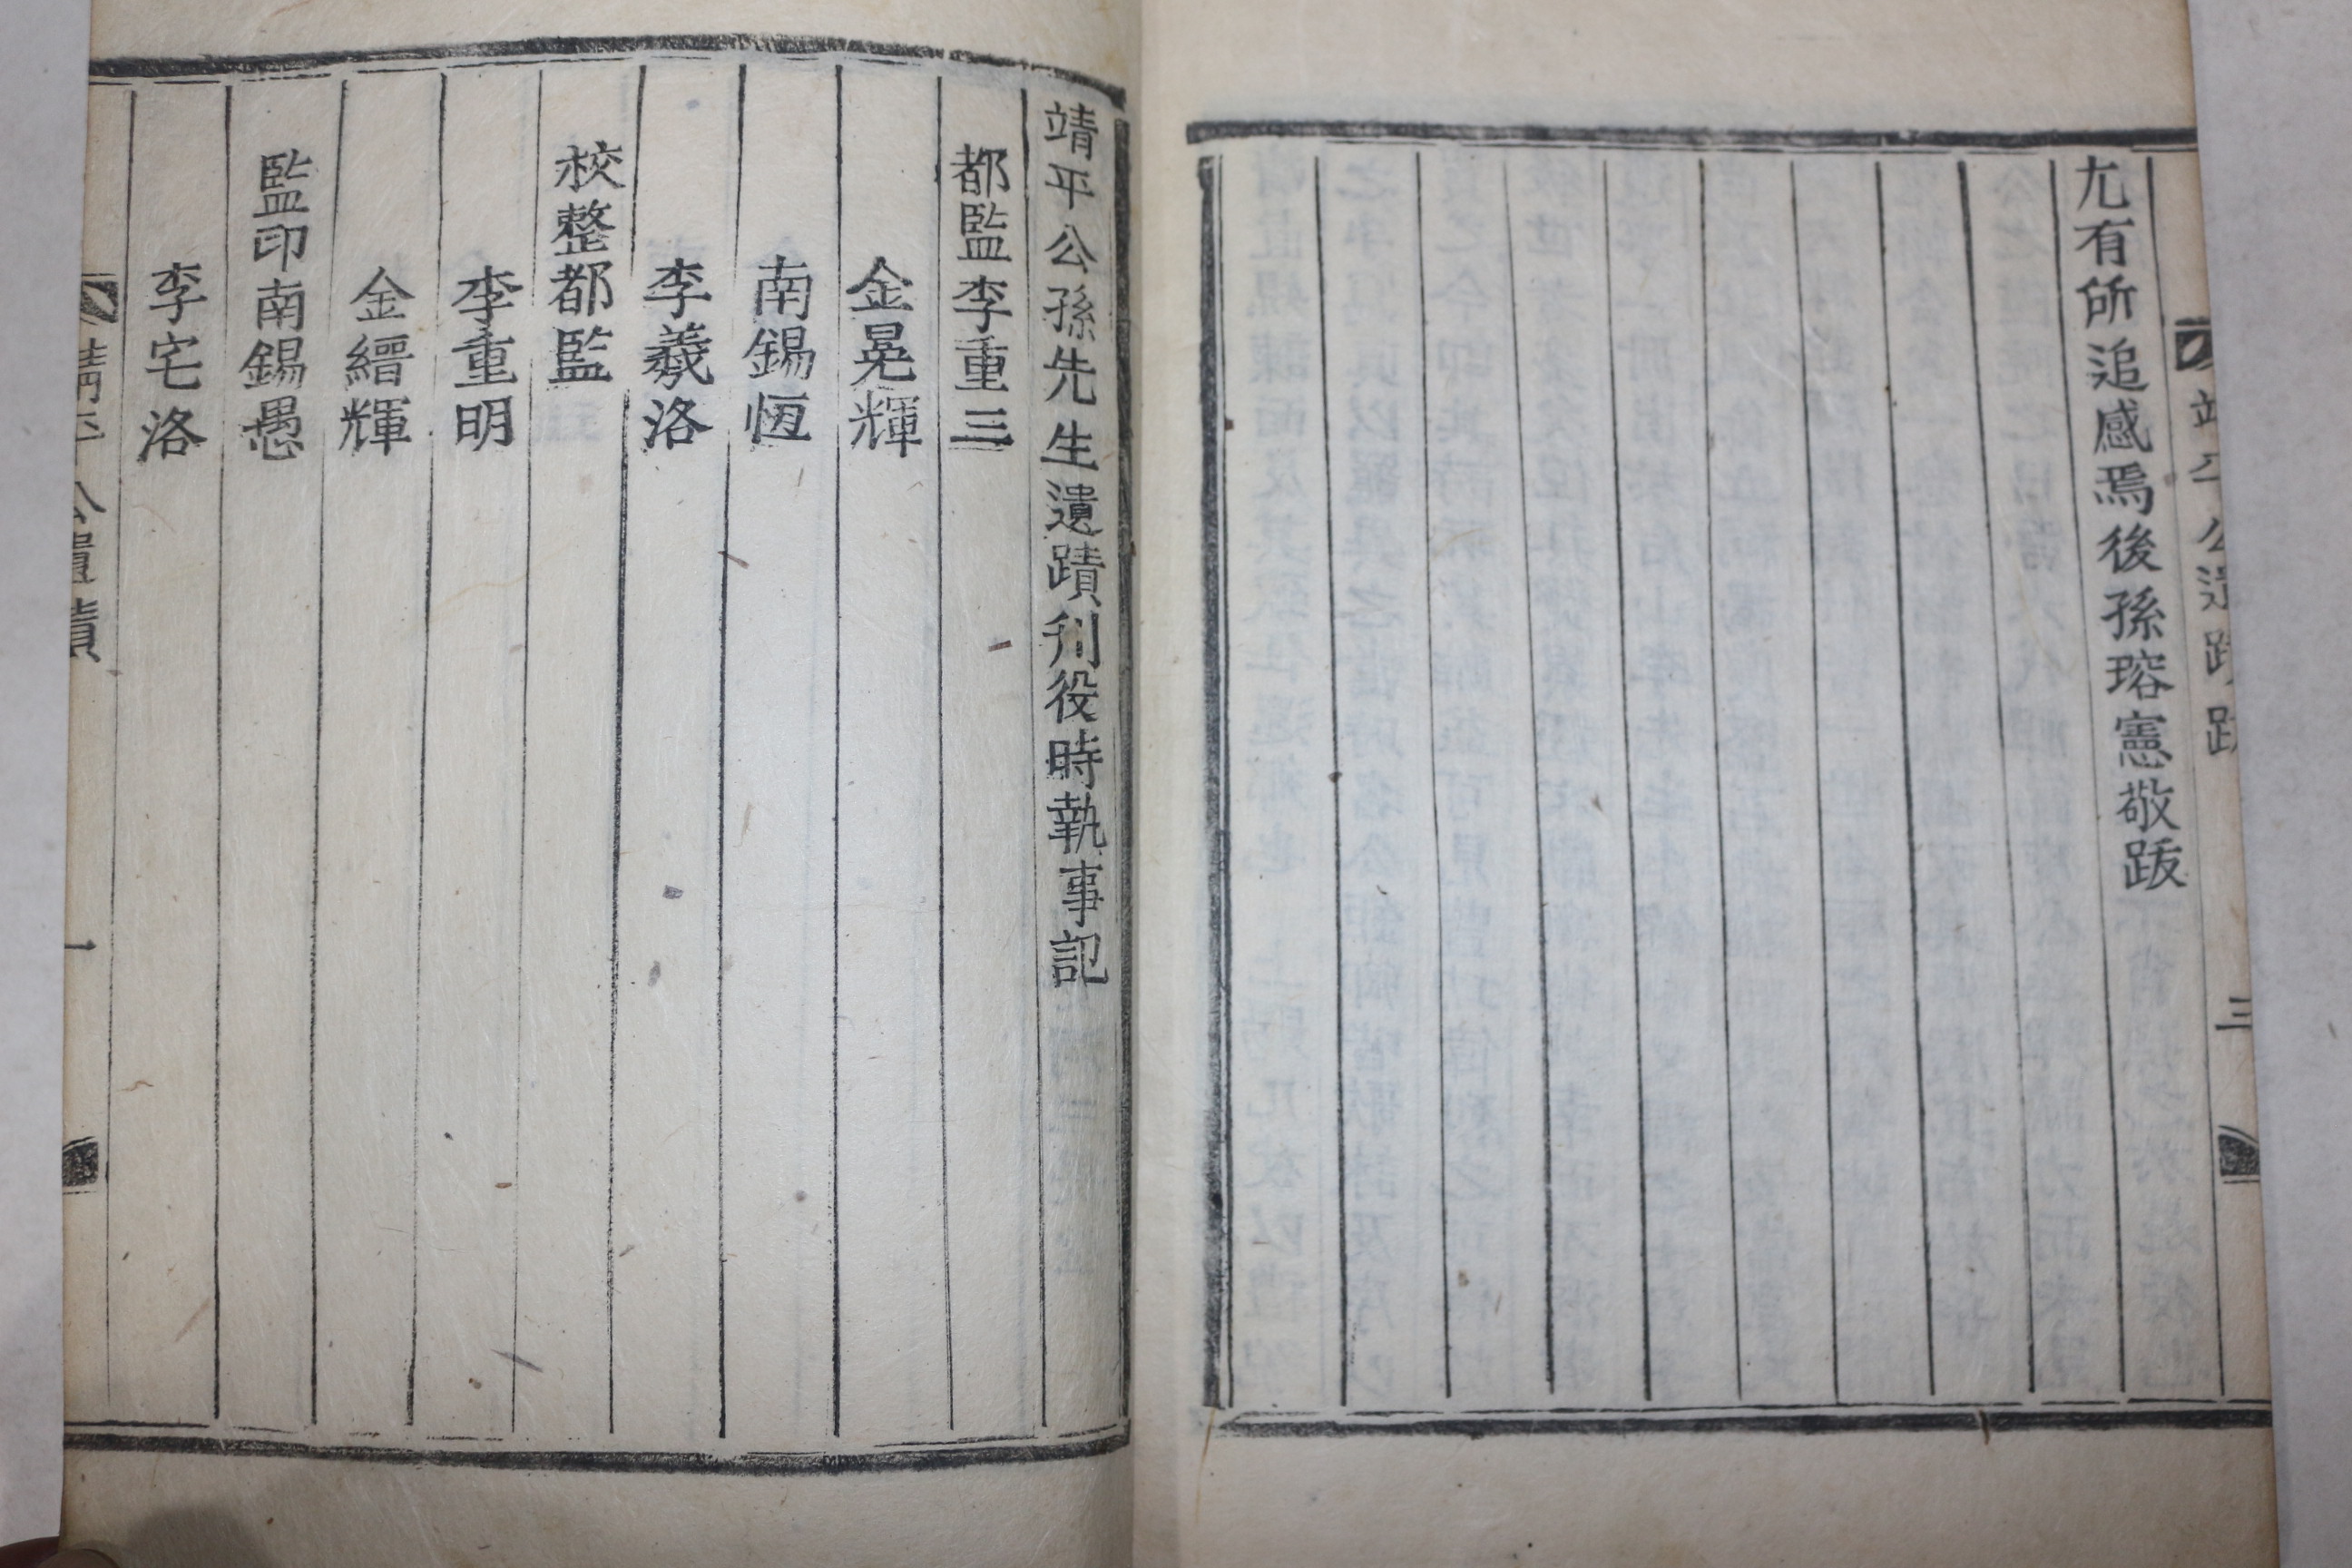 靖平公遺蹟跋
三
尤有所追感焉後孫瑢憲敬跋
靖平公孫先生遺蹟刋役時執事記
都監李重三
金晃輝
南錫恆
李羲洛
校整都監
李重明
金縉輝
監印南錫愚
李宅洛
靖平公遺蹟
一